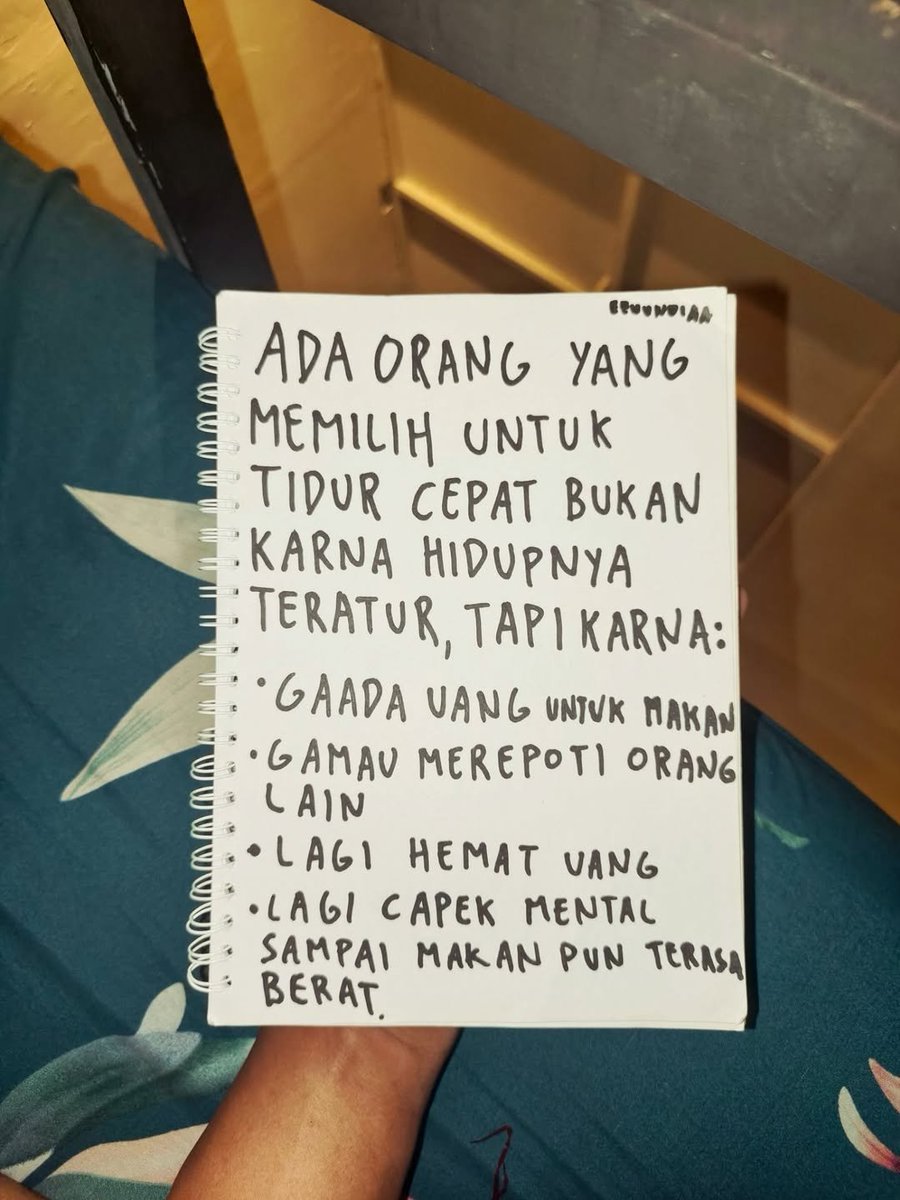 ADA ORANG YANG
MEMILIH UNTUK
TIDUR CEPAT BUKAN
KARNA HIDUPNYA
TERATUR, TAPI KARNA:
• GAADA UANG UNTUK MAKAN
• GAMAU MEREPOTI ORANG
LAIN
• LAGI HEMAT UANG
• LAGI CAPEK MENTAL
SAMPAI MAKAN PUN TERASA
BERAT.